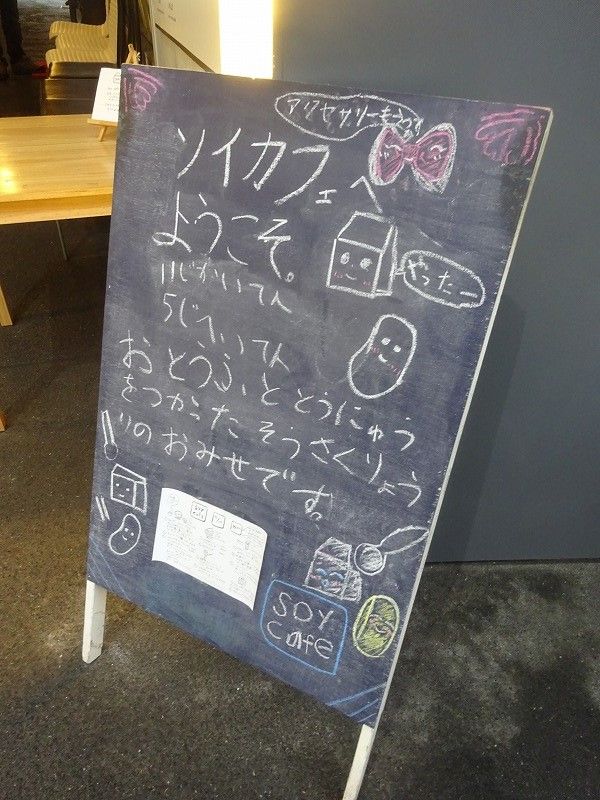 アクセサリーもうってる
ソイカフェへ
ようこそ。
やったー
11じかいてん
5じへいてん
おとうふ、ととうにゅう
をつかったそうさくりょう
りのおみせです。
SOY
Cafe